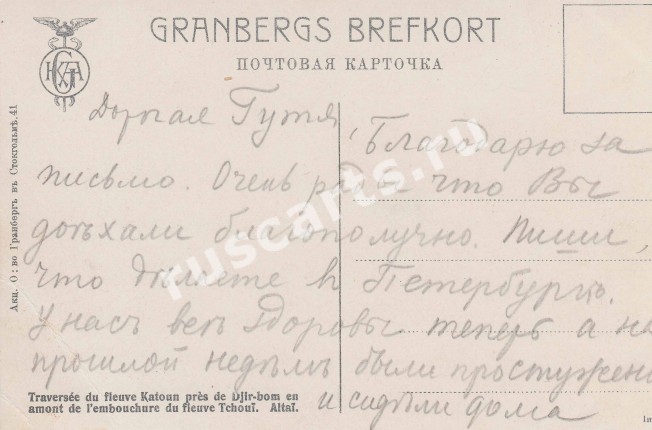 GRANBERGS BREFKORT
ПОЧТОВАЯ КАРТОЧКА
Акц. О:во Гранбергъ въ Стокгольмѣ, 41
Дорогая Гутя
Благодарю за
письмо. Очень рады что Вы
доѣхали благополучно. Пиши,
что дѣлаете въ Петербургѣ.
У насъ всѣ здоровы теперь а на
прошлой недѣлѣ были простужены
и сидѣли дома
Traversée du fleuve Katoun près de Djir-bom en
amont de l'embouchure du fleuve Tchouï. Altaï.
ruscarts.ru